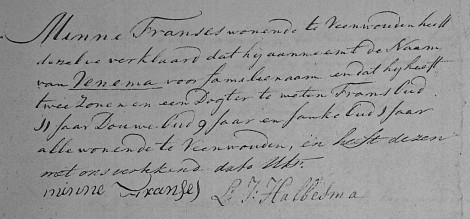 Minne Franses wonende te Veenwouden heeft
dezelve verklaard dat hij aanneemt de Naam
van Venema voor familienaam en dat hij heeft
twee Zonen en een Dogter te weten Frans oud
11 jaar Douwe oud 9 jaar en Janke oud 1 jaar
alle wonende te Veenwouden, en heeft dezen
met ons verkend dato Utr.
minne Franses L. J. Halbesma